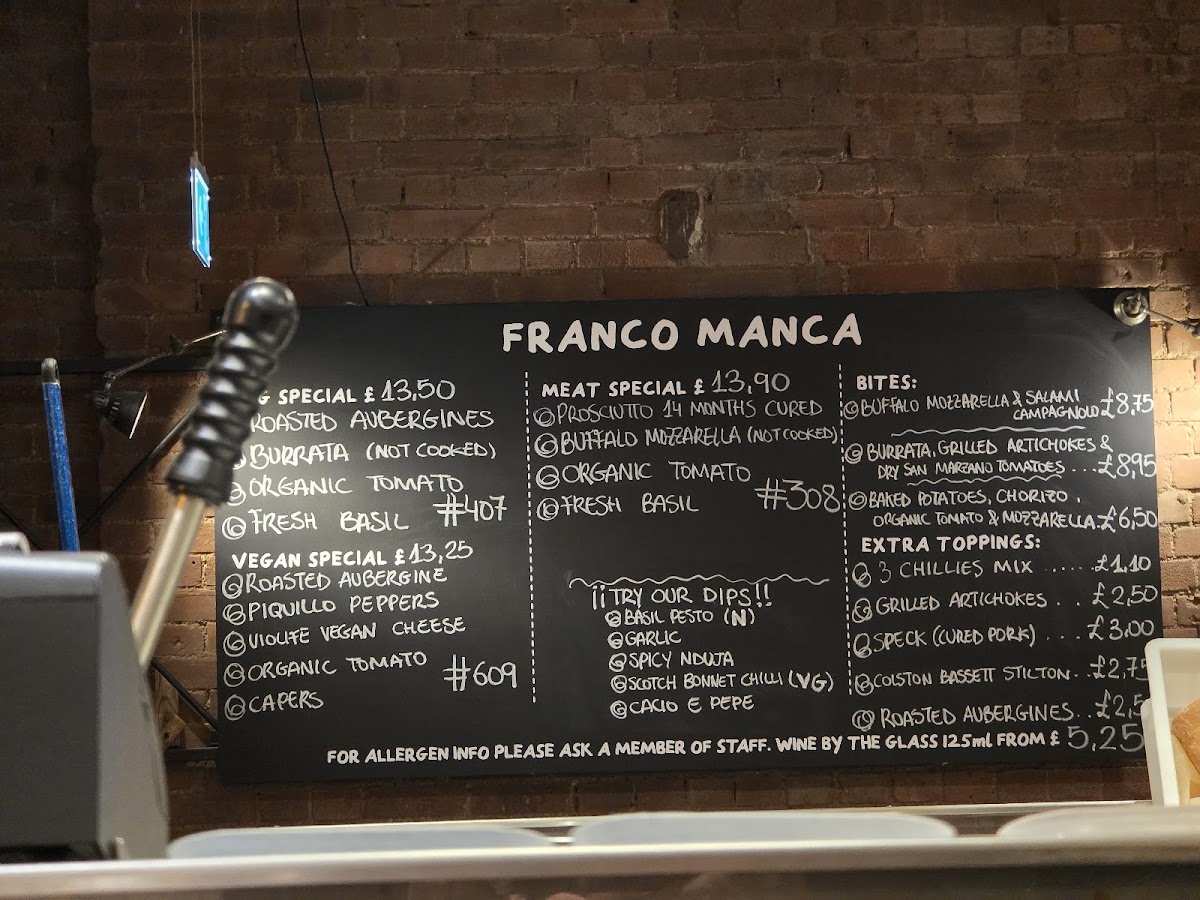 FRANCO MANCA
G SPECIAL £ 13,50
ROASTED AUBERGINES
BURRATA (NOT COOKED)
ORGANIC TOMATO
FRESH BASIL #407
VEGAN SPECIAL £ 13,25
ROASTED AUBERGINE
PIQUILLO PEPPERS
VIOLIFE VEGAN CHEESE
ORGANIC TOMATO #609
CAPERS
MEAT SPECIAL £ 13,90
PROSCIUTTO 14 MONTHS CURED
BUFFALO MOZZARELLA (NOT COOKED)
ORGANIC TOMATO
FRESH BASIL #308
¡¡TRY OUR DIPS!!
BASIL PESTO (N)
GARLIC
SPICY NDUJA
SCOTCH BONNET CHILLI (VG)
CACIO E PEPE
BITES:
BUFFALO MOZZARELLA & SALAMI
CAMPAGNOLO £8,75
BURRATA, GRILLED ARTICHOKES &
DRY SAN MARZANO TOMATOES ... £8,95
BAKED POTATOES, CHORIZO,
ORGANIC TOMATO & MOZZARELLA. £6,50
EXTRA TOPPINGS:
3 CHILLIES MIX ...... £1,10
GRILLED ARTICHOKES ... £2,50
SPECK (CURED PORK) .... £3,00
COLSTON BASSETT STILTON.. £2,75
ROASTED AUBERGINES.. £2,5
FOR ALLERGEN INFO PLEASE ASK A MEMBER OF STAFF. WINE BY THE GLASS 125ml FROM £ 5,25